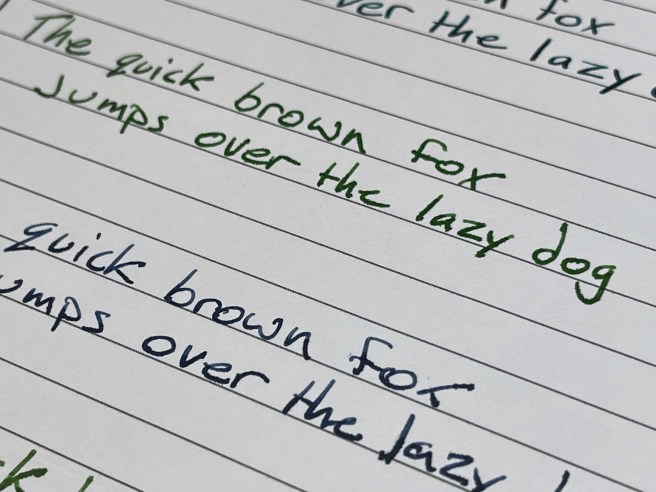 fox
over the lazy
The quick brown fox
jumps over the lazy dog
quick brown fox
umps over the lazy